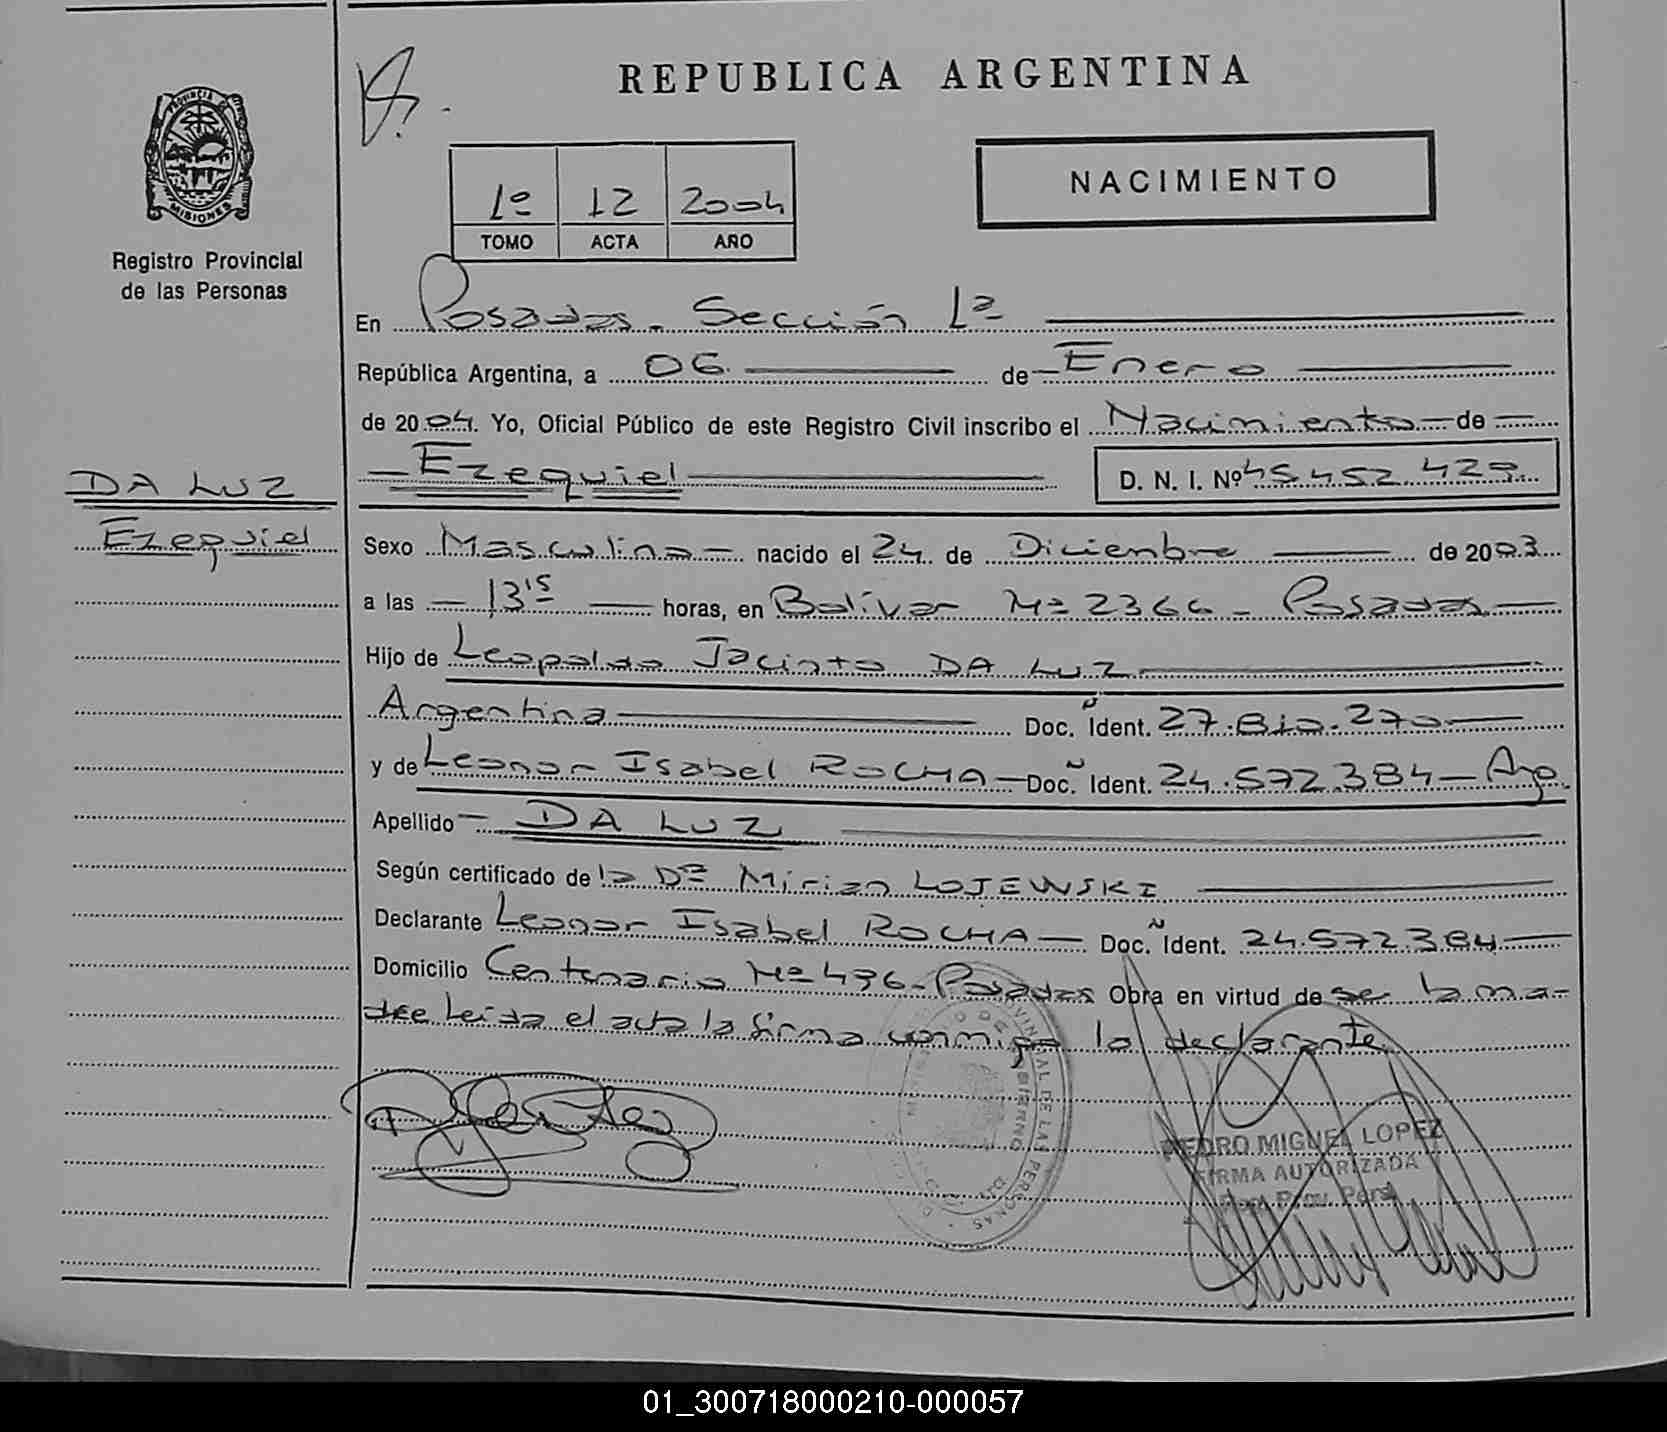 REPUBLICA ARGENTINA
PROVINCIA DE
MISIONES
Registro Provincial
de las Personas
1º 12 2004
TOMO ACTA AÑO
NACIMIENTO
En Posadas. Sección 1ª
República Argentina, a 06 de Enero
de 2004. Yo, Oficial Público de este Registro Civil inscribo el Nacimiento de
Ezequiel D. N. I. Nº 45.452.429.
DA LUZ
Ezequiel
Sexo Masculino nacido el 24 de Diciembre de 2003
a las 13'15 horas, en Bolívar Nº 2366 - Posadas
Hijo de Leopoldo Jacinto DA LUZ
Argentina Doc. Ident. 27.810.270
y de Leonor Isabel ROCHA Doc. Ident. 24.572.384 - Arg.
Apellido DA LUZ
Según certificado de la Drª Mirian LOJEWSKI
Declarante Leonor Isabel ROCHA Doc. Ident. 24.572.384
Domicilio Centenario Nº 496 - Posadas Obra en virtud de ser la ma-
dre leida el acta la firma conmigo la declarante
PEDRO MIGUEL LOPEZ
FIRMA AUTORIZADA
Reg. Prov. Pers.
01_300718000210-000057